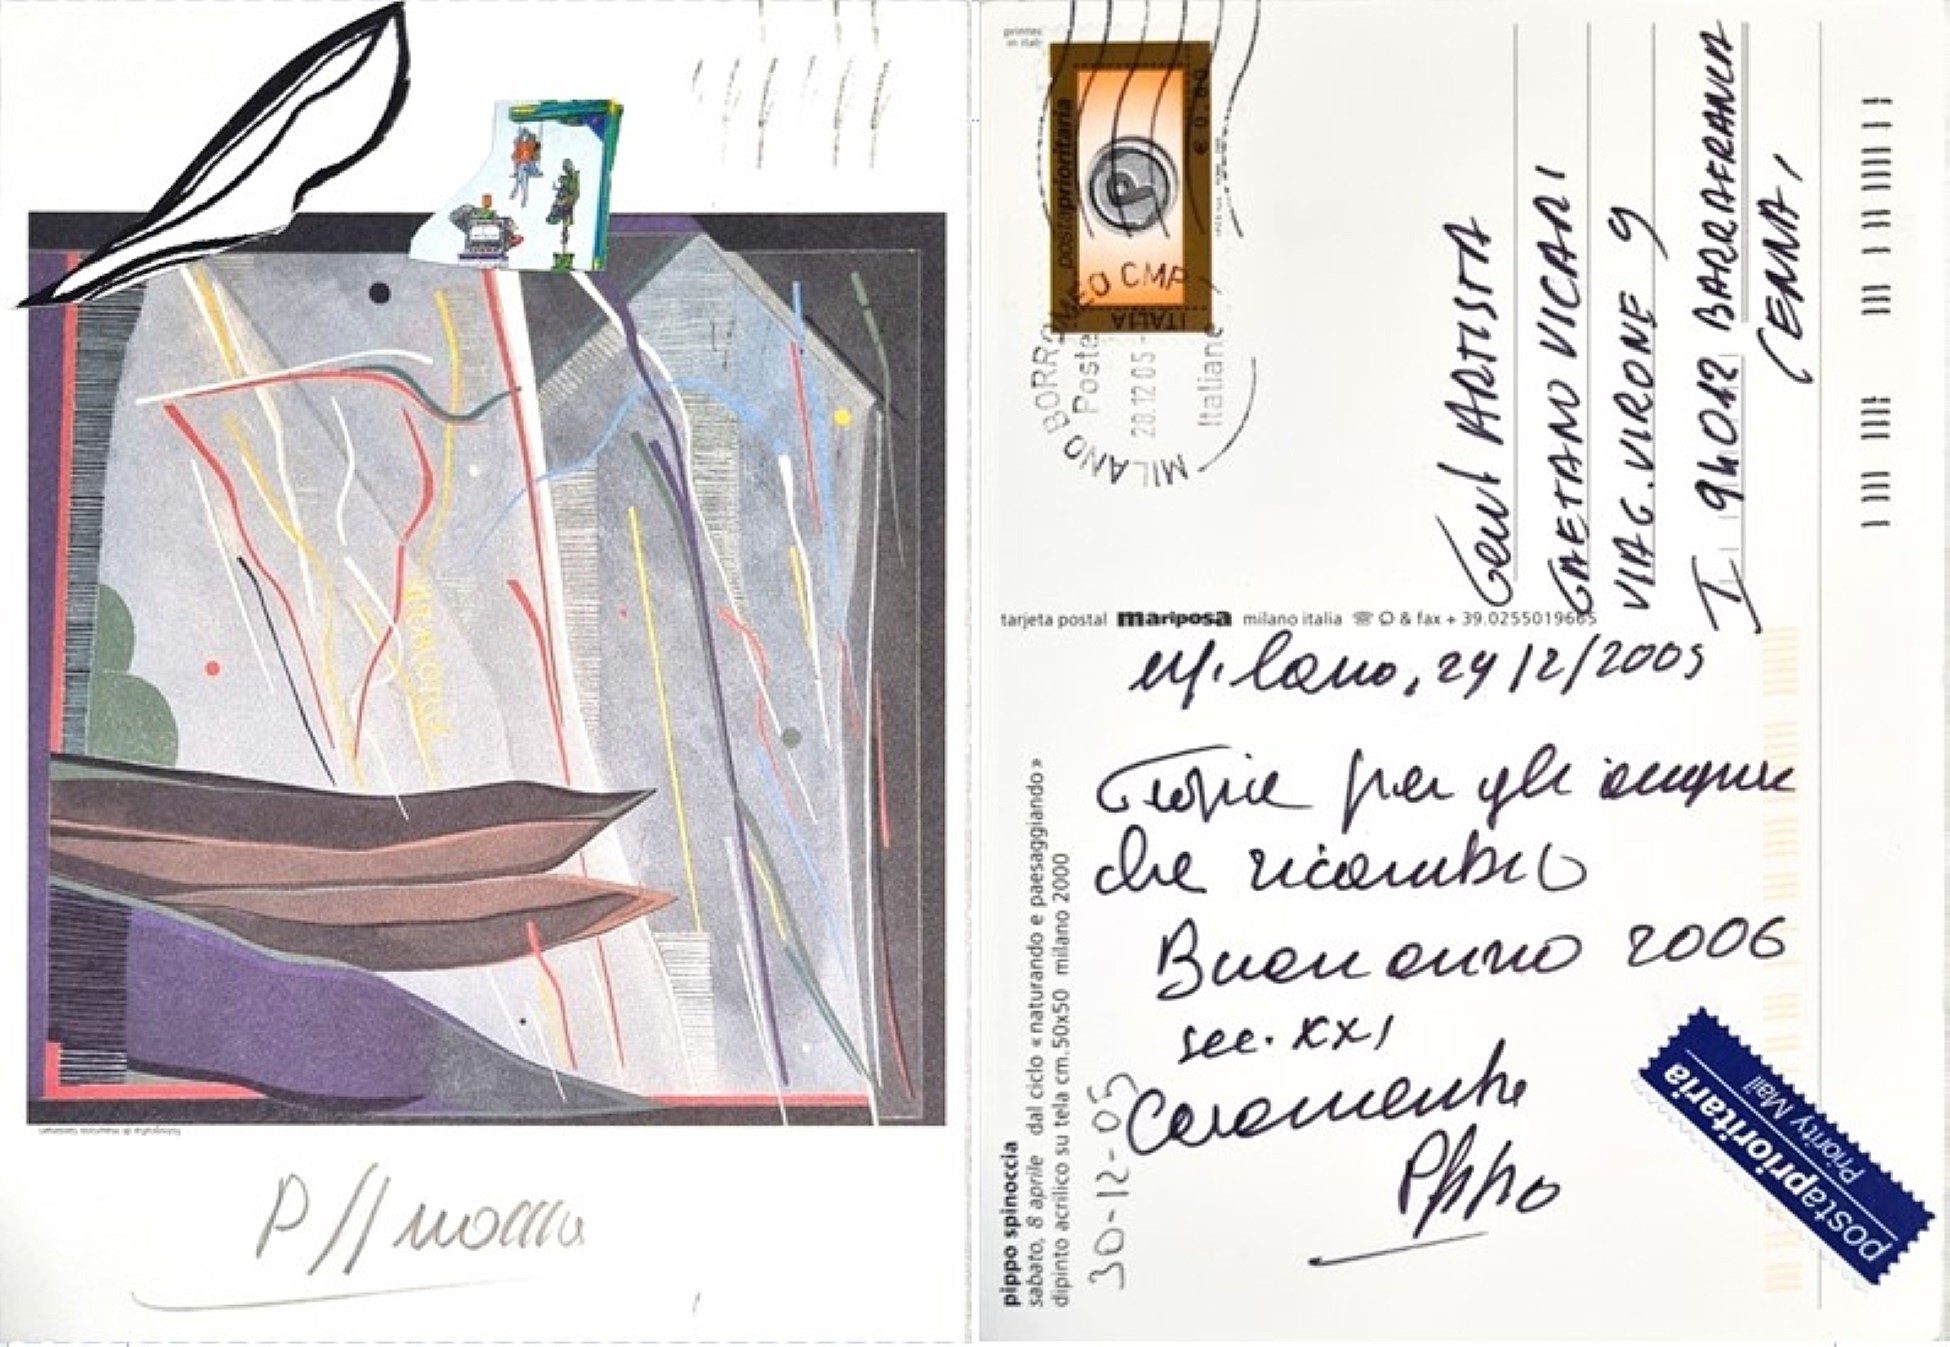 P Spinoccia
fotografia di maurizio
printed
in italy
postaprioritaria
P
€ 0,60
ITALIA
MILANO BORROMEO CMP
Poste
28.12.05-
Italiane
Gent ARTISTA
GAETANO VICARI
VIA G. VIRONE 9
I 94012 BARRAFRANCA
(ENNA)
tarjeta postal mariposa milano italia & fax + 39.0255019665
Milano, 24/12/2005
Grazie per gli auguri
che ricambio
Buon anno 2006
sec. XXI
Caramente
Pippo
30-12-05
pippo spinoccia
sabato, 8 aprile dal ciclo « naturando e paesaggiando »
dipinto acrilico su tela cm.50x50 milano 2000
postaprioritaria
Priority Mail